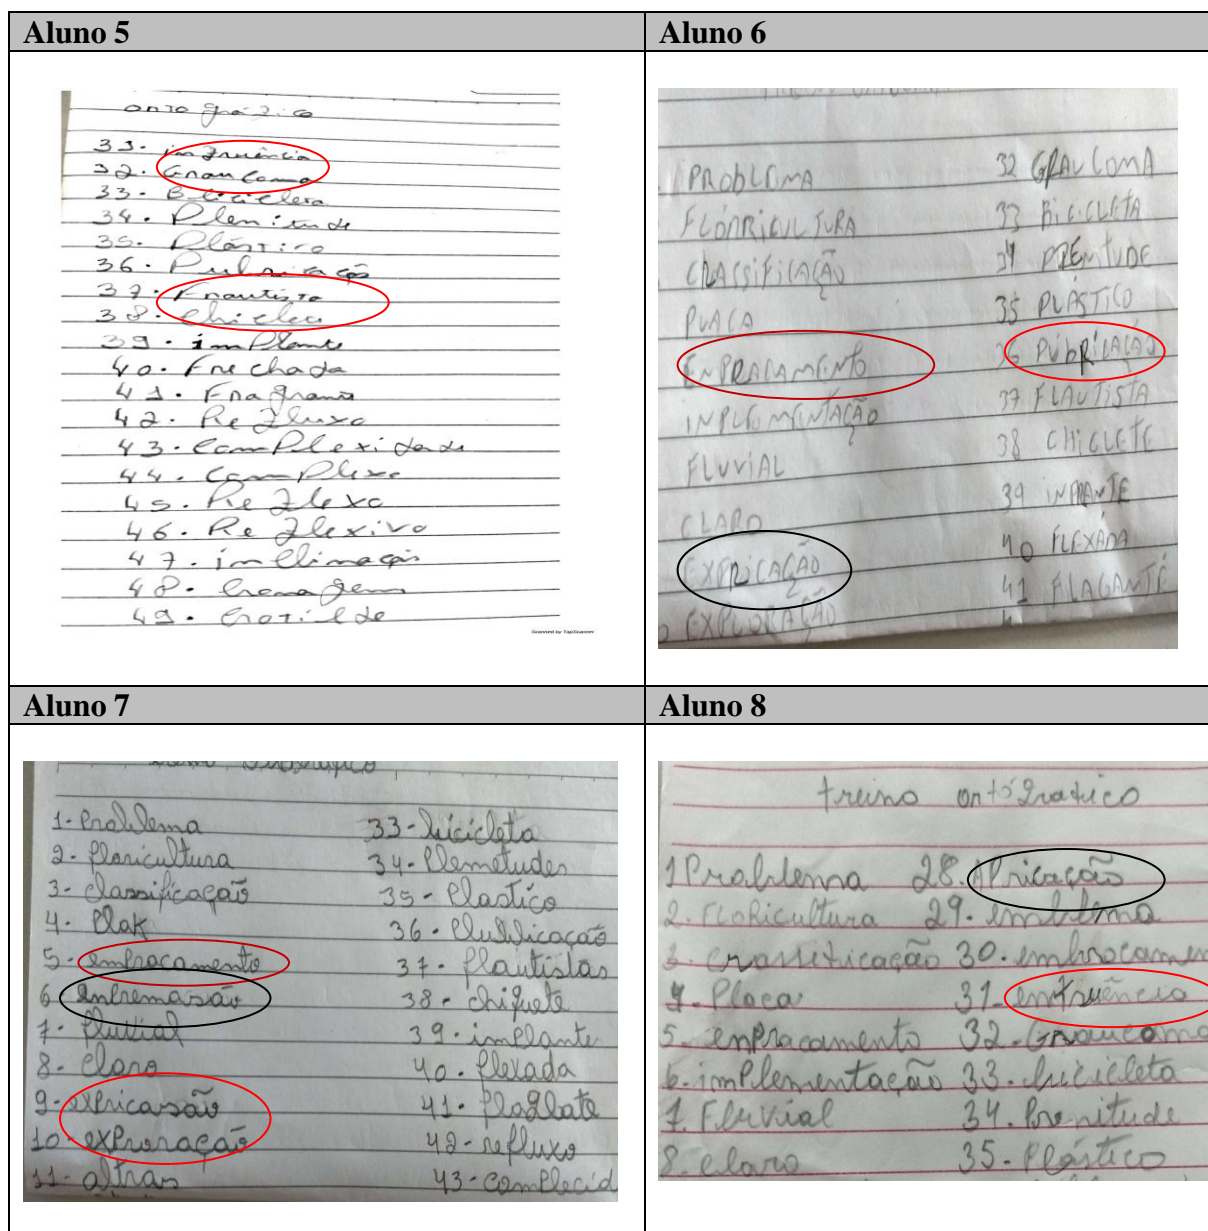 Aluno 5
Aluno 6
33. 
32. Graucoma
33. Bicicleta
34. Plenitude
35. Plástico
36.
37. Frautista
38. Chiclea
39. implante
40. Frechada
41. Fragrana
42. Refluxo
43. Complexidade
44. Complexo
45. Reflexo
46. Reflexivo
47. imClinação
48. 
49. Crotilde
Scanned by TapScanner
PROblEMA
FLÓRRICULTURA
CLASSIFICAÇÃO
PLACA
ENPRACAMENTO
INPLEOMENTAÇÃO
FLUVIAL
CLARO
EXPRICAÇÃO
EXPLORAÇÃO
32 GRAUCOMA
33 BICICLETA
34 PREMTUDE
35 PLÁSTICO
36 PUbRICAÇÃO
37 FLAUTISTA
38 CHICLETE
39 INPRANTE
40 FLEXADA
41 FLAGANTE
Aluno 7
Aluno 8
1- Problema
2- floricultura
3- classificação
4- Plak
5- empracamento
6
7- fluvial
8- Claro
9- expricasão
10- exproração
11- altras
33- bicicleta
34- Plemetudes
35- Plastico
36-
37- flautistas
38- chiquete
39- implante
40- flexada
41-
42- refluxo
43- complecid
treino ortográfico
1 Problema
2. FloRicultura
3. crassificação
4- Placa
5. enpracamento
6. implementação
7. Fluvial
8. claro
28. APricação
29. emblema
30. embrocamen
31- enfruência
32. Graucoma
33. bicicleta
34. Prenitude
35. Plástico